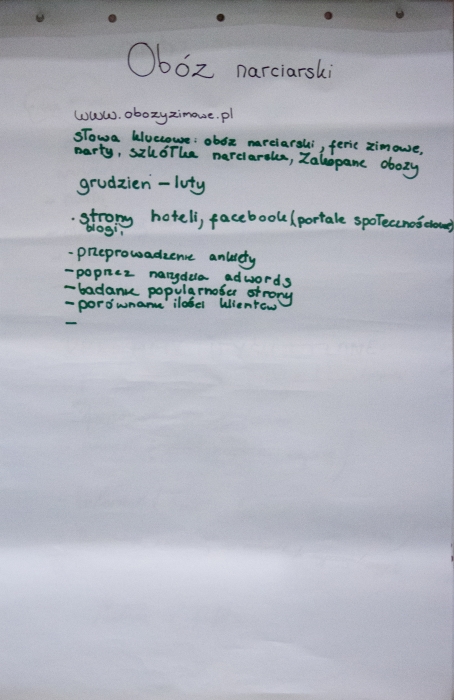 Obóz narciarski
www.obozyzimowe.pl
słowa kluczowe: obóz narciarski, ferie zimowe,
narty, szkółka narciarska, Zakopane obozy
grudzień – luty
· strony hoteli, facebook (portale społecznościowe)
blogi,
- przeprowadzenie ankiety
- poprzez narzędzia adwords
- badanie popularności strony
- porównanie ilości klientów
-